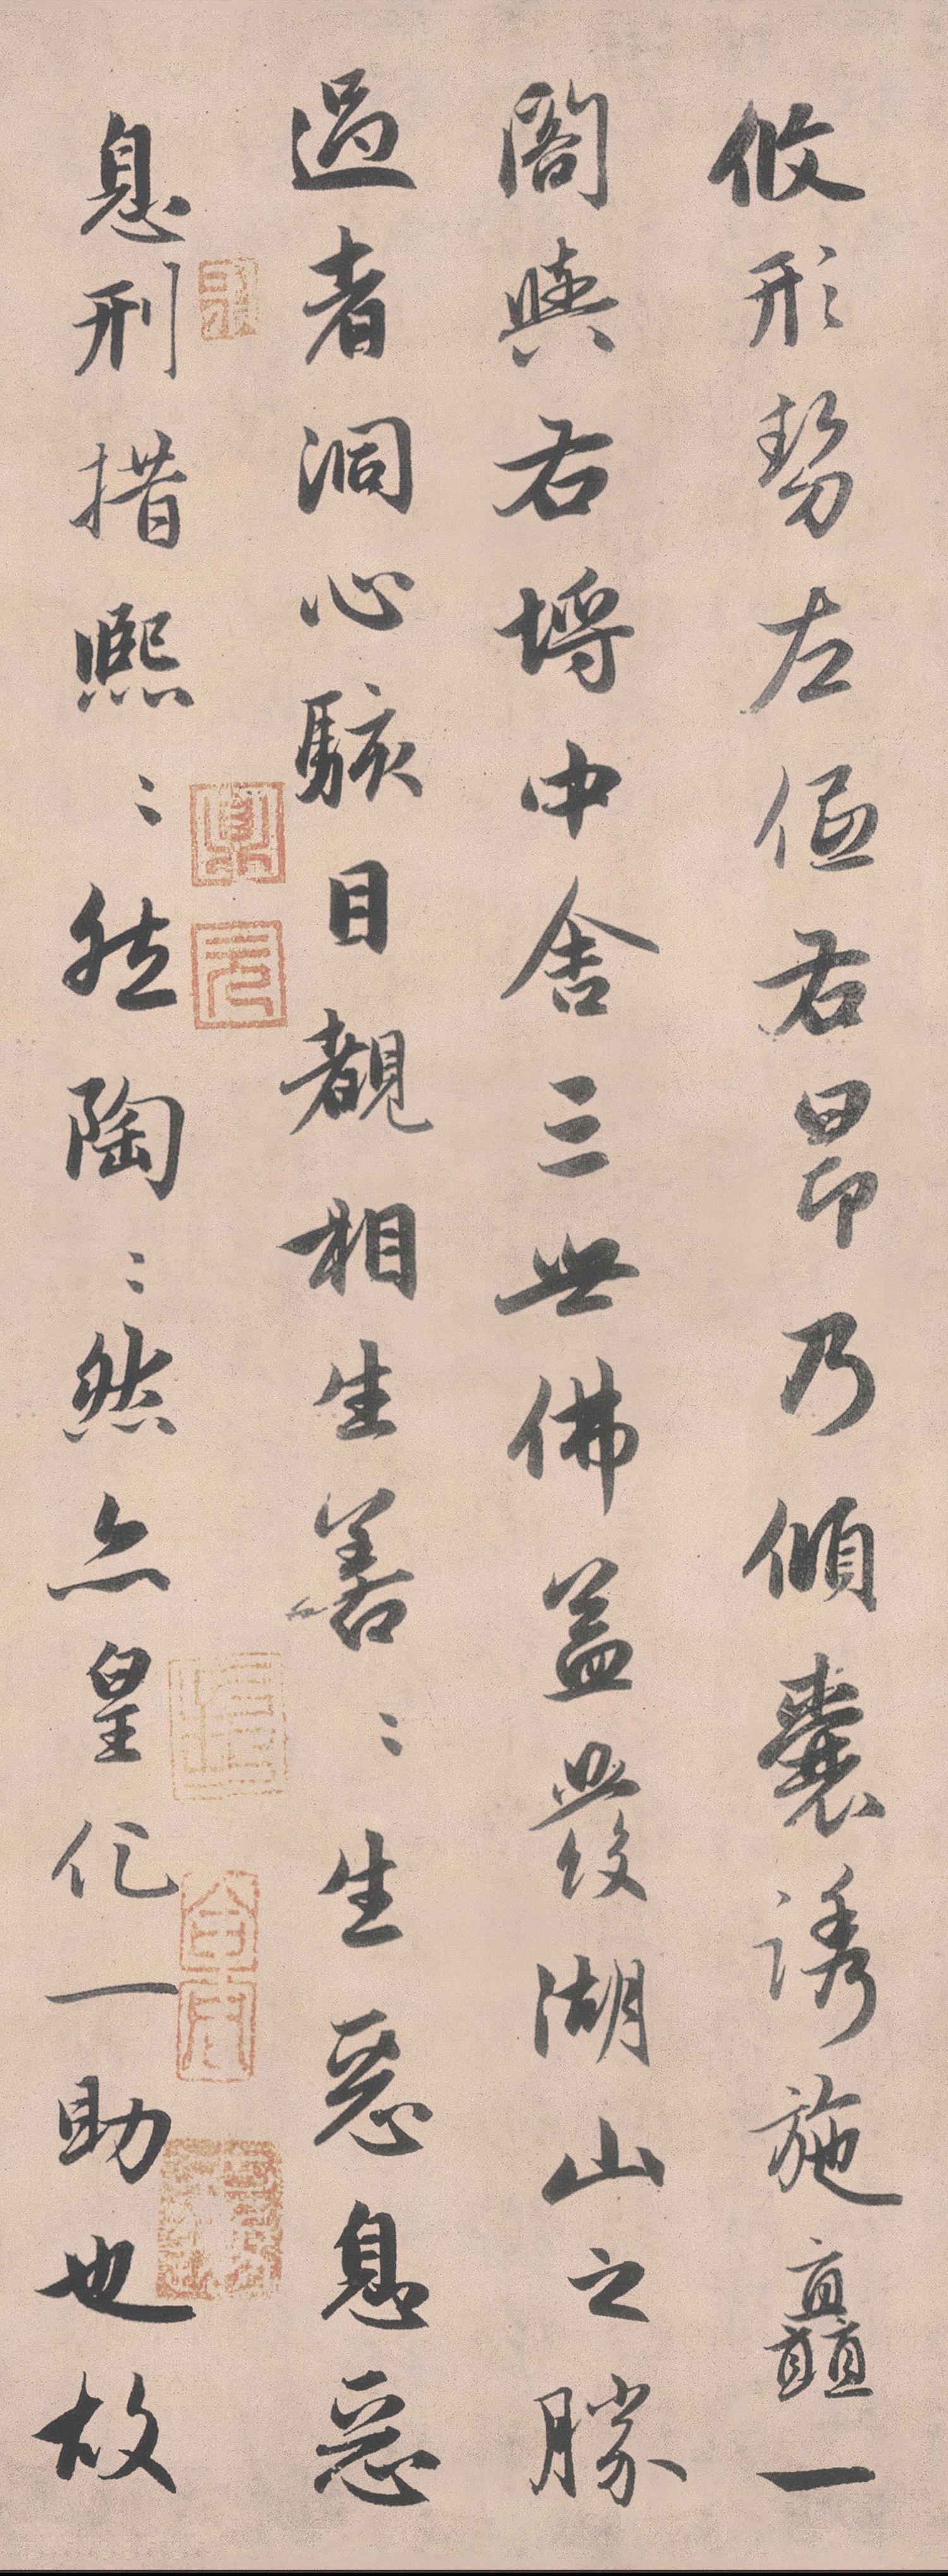 攸形勢左偃右昂乃傾囊誘施矗一
閣與右埒中舍三世佛益發湖山之勝
過者洞心駭目覩相生善〻生惡息惡
息刑措熙〻然陶〻然亦皇化一助也故